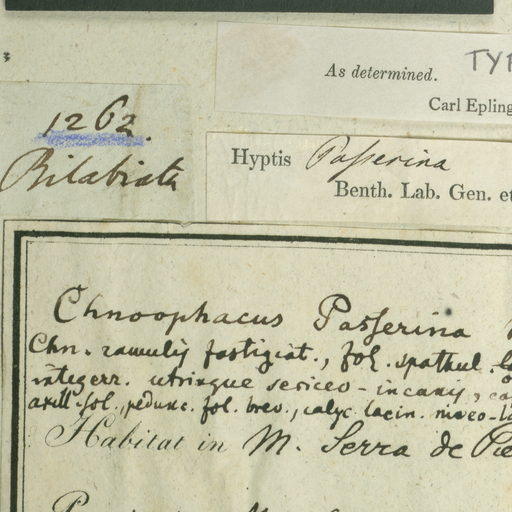 TYP
As determined.
Carl Epling
1262.
Bilabiata
Hyptis Paſserina
Benth. Lab. Gen. et
Chnoophacus Paſserina
Chn. ramulis fastigiat., fol. spathul.
integerr. utrinque sericeo-incanis,
axill. fol., pedunc. fol. brev., calyc. lacin. niveo-
Habitat in M. Serra de Pie